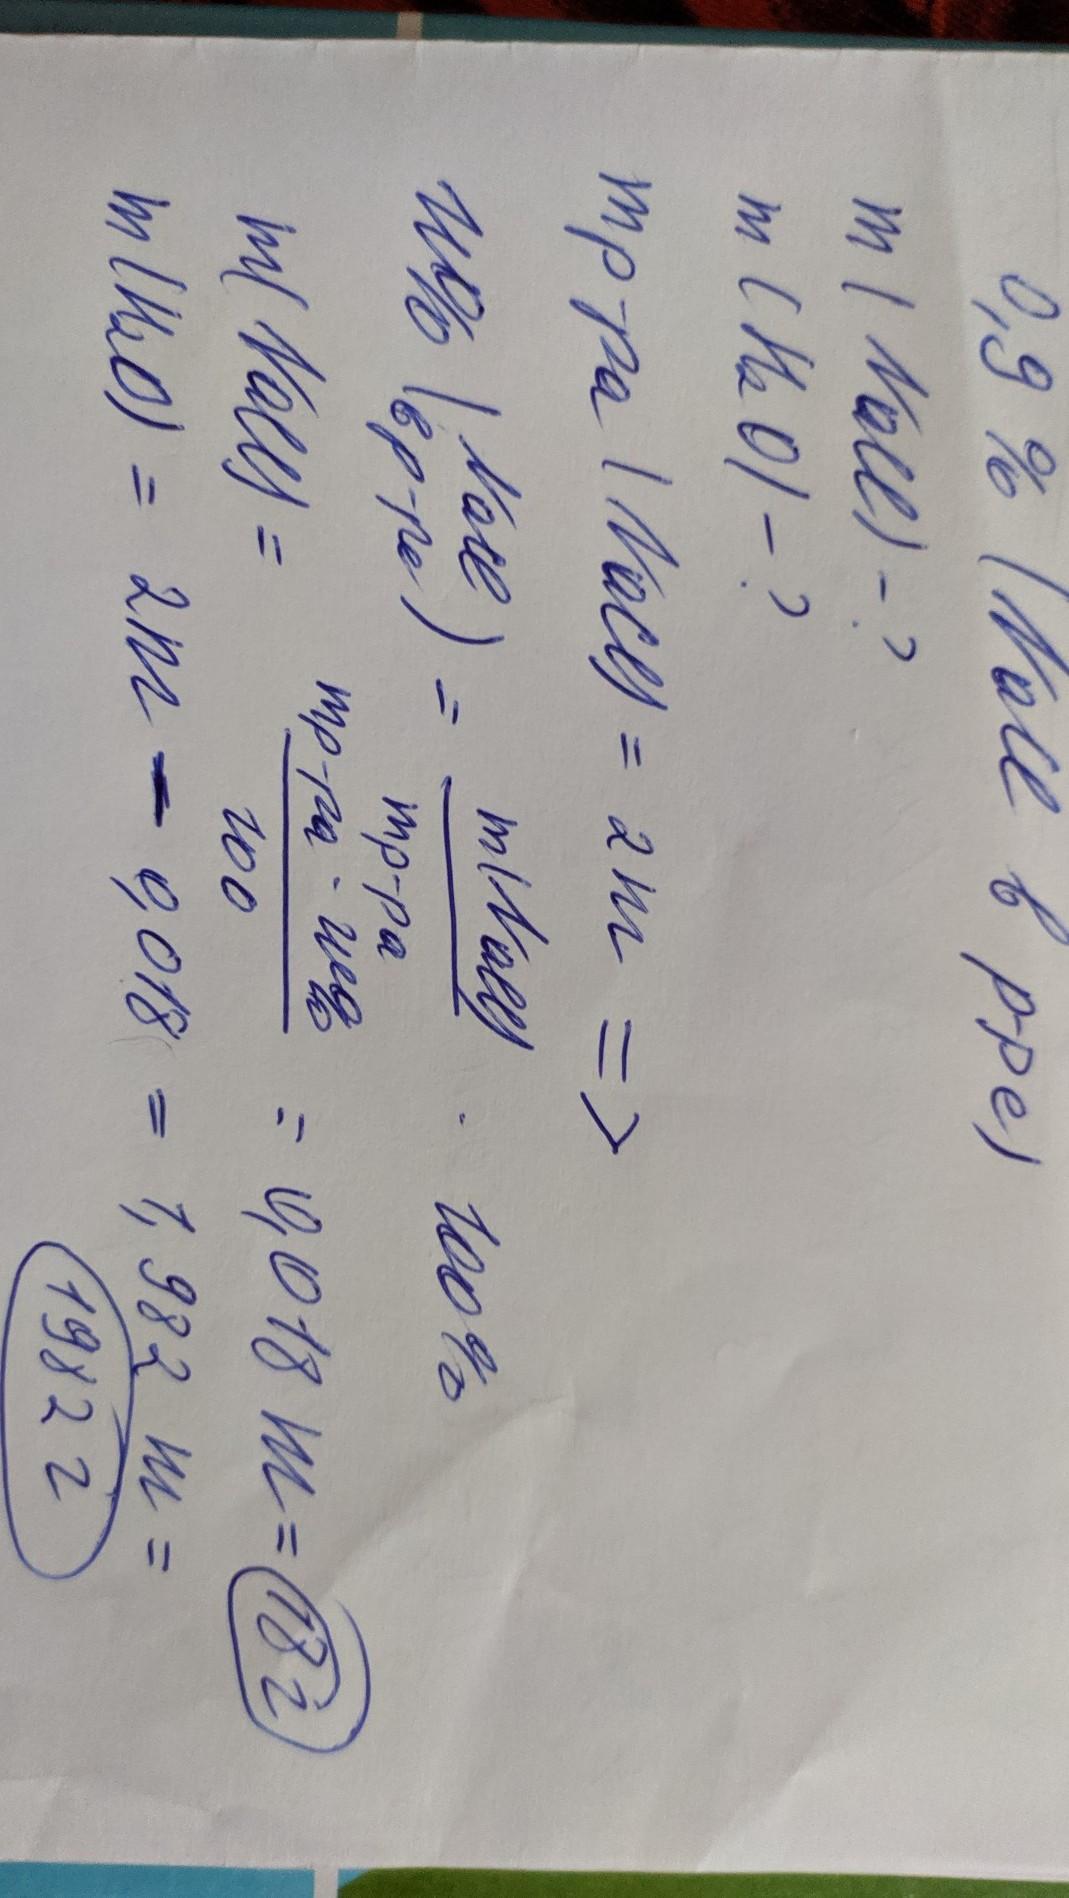 0,9% (NaCl в р-ре)
m(NaCl) - ?
m(H2O) - ?
mр-ра (NaCl) = 2кг =>
W% (NaCl в р-ре) = m(NaCl) / mр-ра · 100%
m(NaCl) = mр-ра · W% / 100 = 0,018 кг = 18 г
m(H2O) = 2кг - 0,018 = 1,982 кг =
1982 г